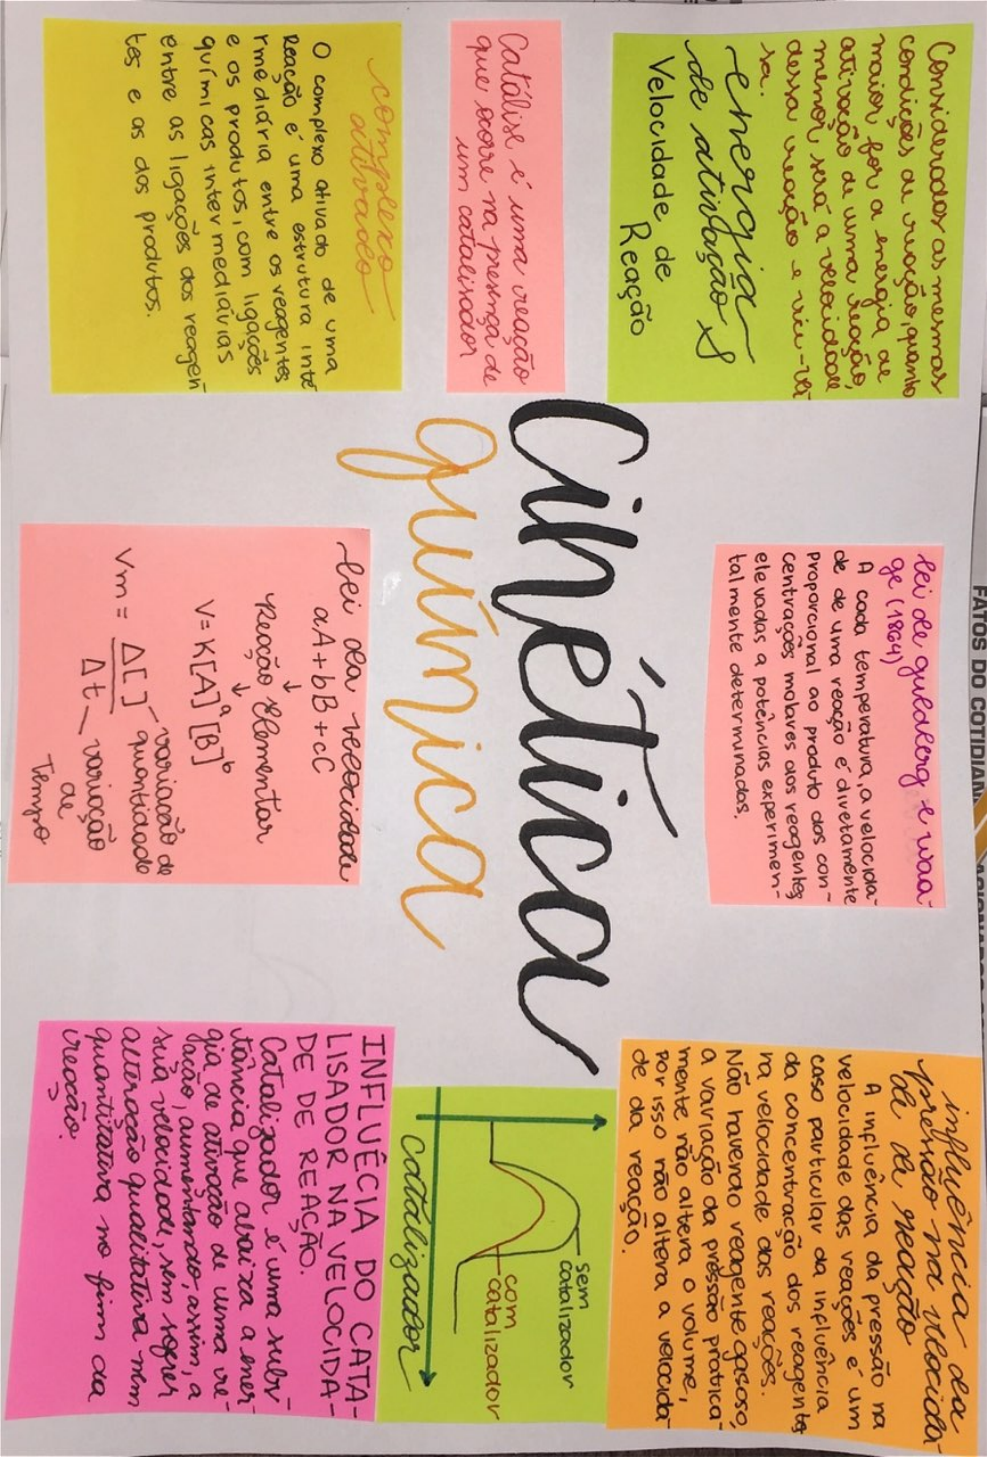 Cinética
química
Considerados as mesmas
condições de reação, quanto
maior for a energia de
ativação de uma reação,
menor será a velocidade
dessa reação e vice-ver
sa.
energia
de ativação X
Velocidade de
Reação
Catálise é uma reação
que ocorre na presença de
um catalisador
complexo
ativado
O complexo ativado de uma
Reação é uma estrutura inte
rmediária entre os reagentes
e os produtos, com ligações
químicas intermediárias
entre as ligações dos reagen
tes e as dos produtos.
lei de guldberg e waa-
ge (1864)
A cada temperatura, a velocida-
de de uma reação é diretamente
proporcional ao produto das con-
centrações molares dos reagentes
elevadas a potências experimen-
talmente determinadas.
lei da velocidade
aA + bB + cC
↓
Reação Elementar
↓
V = K[A]ᵃ [B]ᵇ
Vm = Δ[ ] — variação de
quantidade
Δt — variação
de
Tempo
influência da
pressão na velocida-
de da reação
A influência da pressão na
velocidade das reações é um
caso particular da influência
da concentração dos reagentes
na velocidade das reações.
Não havendo reagente gasoso,
a variação da pressão pratica-
mente não altera o volume,
por isso não altera a velocida-
de da reação.
sem
catalizador
com
catalizador
catalizador
INFLUÊCIA DO CATA-
LISADOR NA VELOCIDA-
DE DE REAÇÃO.
Catalizador é uma subs-
tância que abaixa a ener-
gia de ativação de uma re-
ação, aumentando, assim, a
sua velocidade, sem sofrer
alteração qualitativa nem
quantitativa no fim da
reação.
FATOS DO COTIDIAN